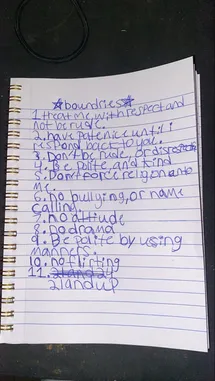 ☆boundries☆
1. treat me with respect and
not be rude.
2. have patenice until i
respond back to you.
3. Don't be rude or disrespect
4. Be polite and kind
5. Don't force religion onto
me.
6. no bullying, or name
calling.
7. no attiude
8. no drama
9. Be polite by using
manners.
10. no flirting
11. 21and24
21andup